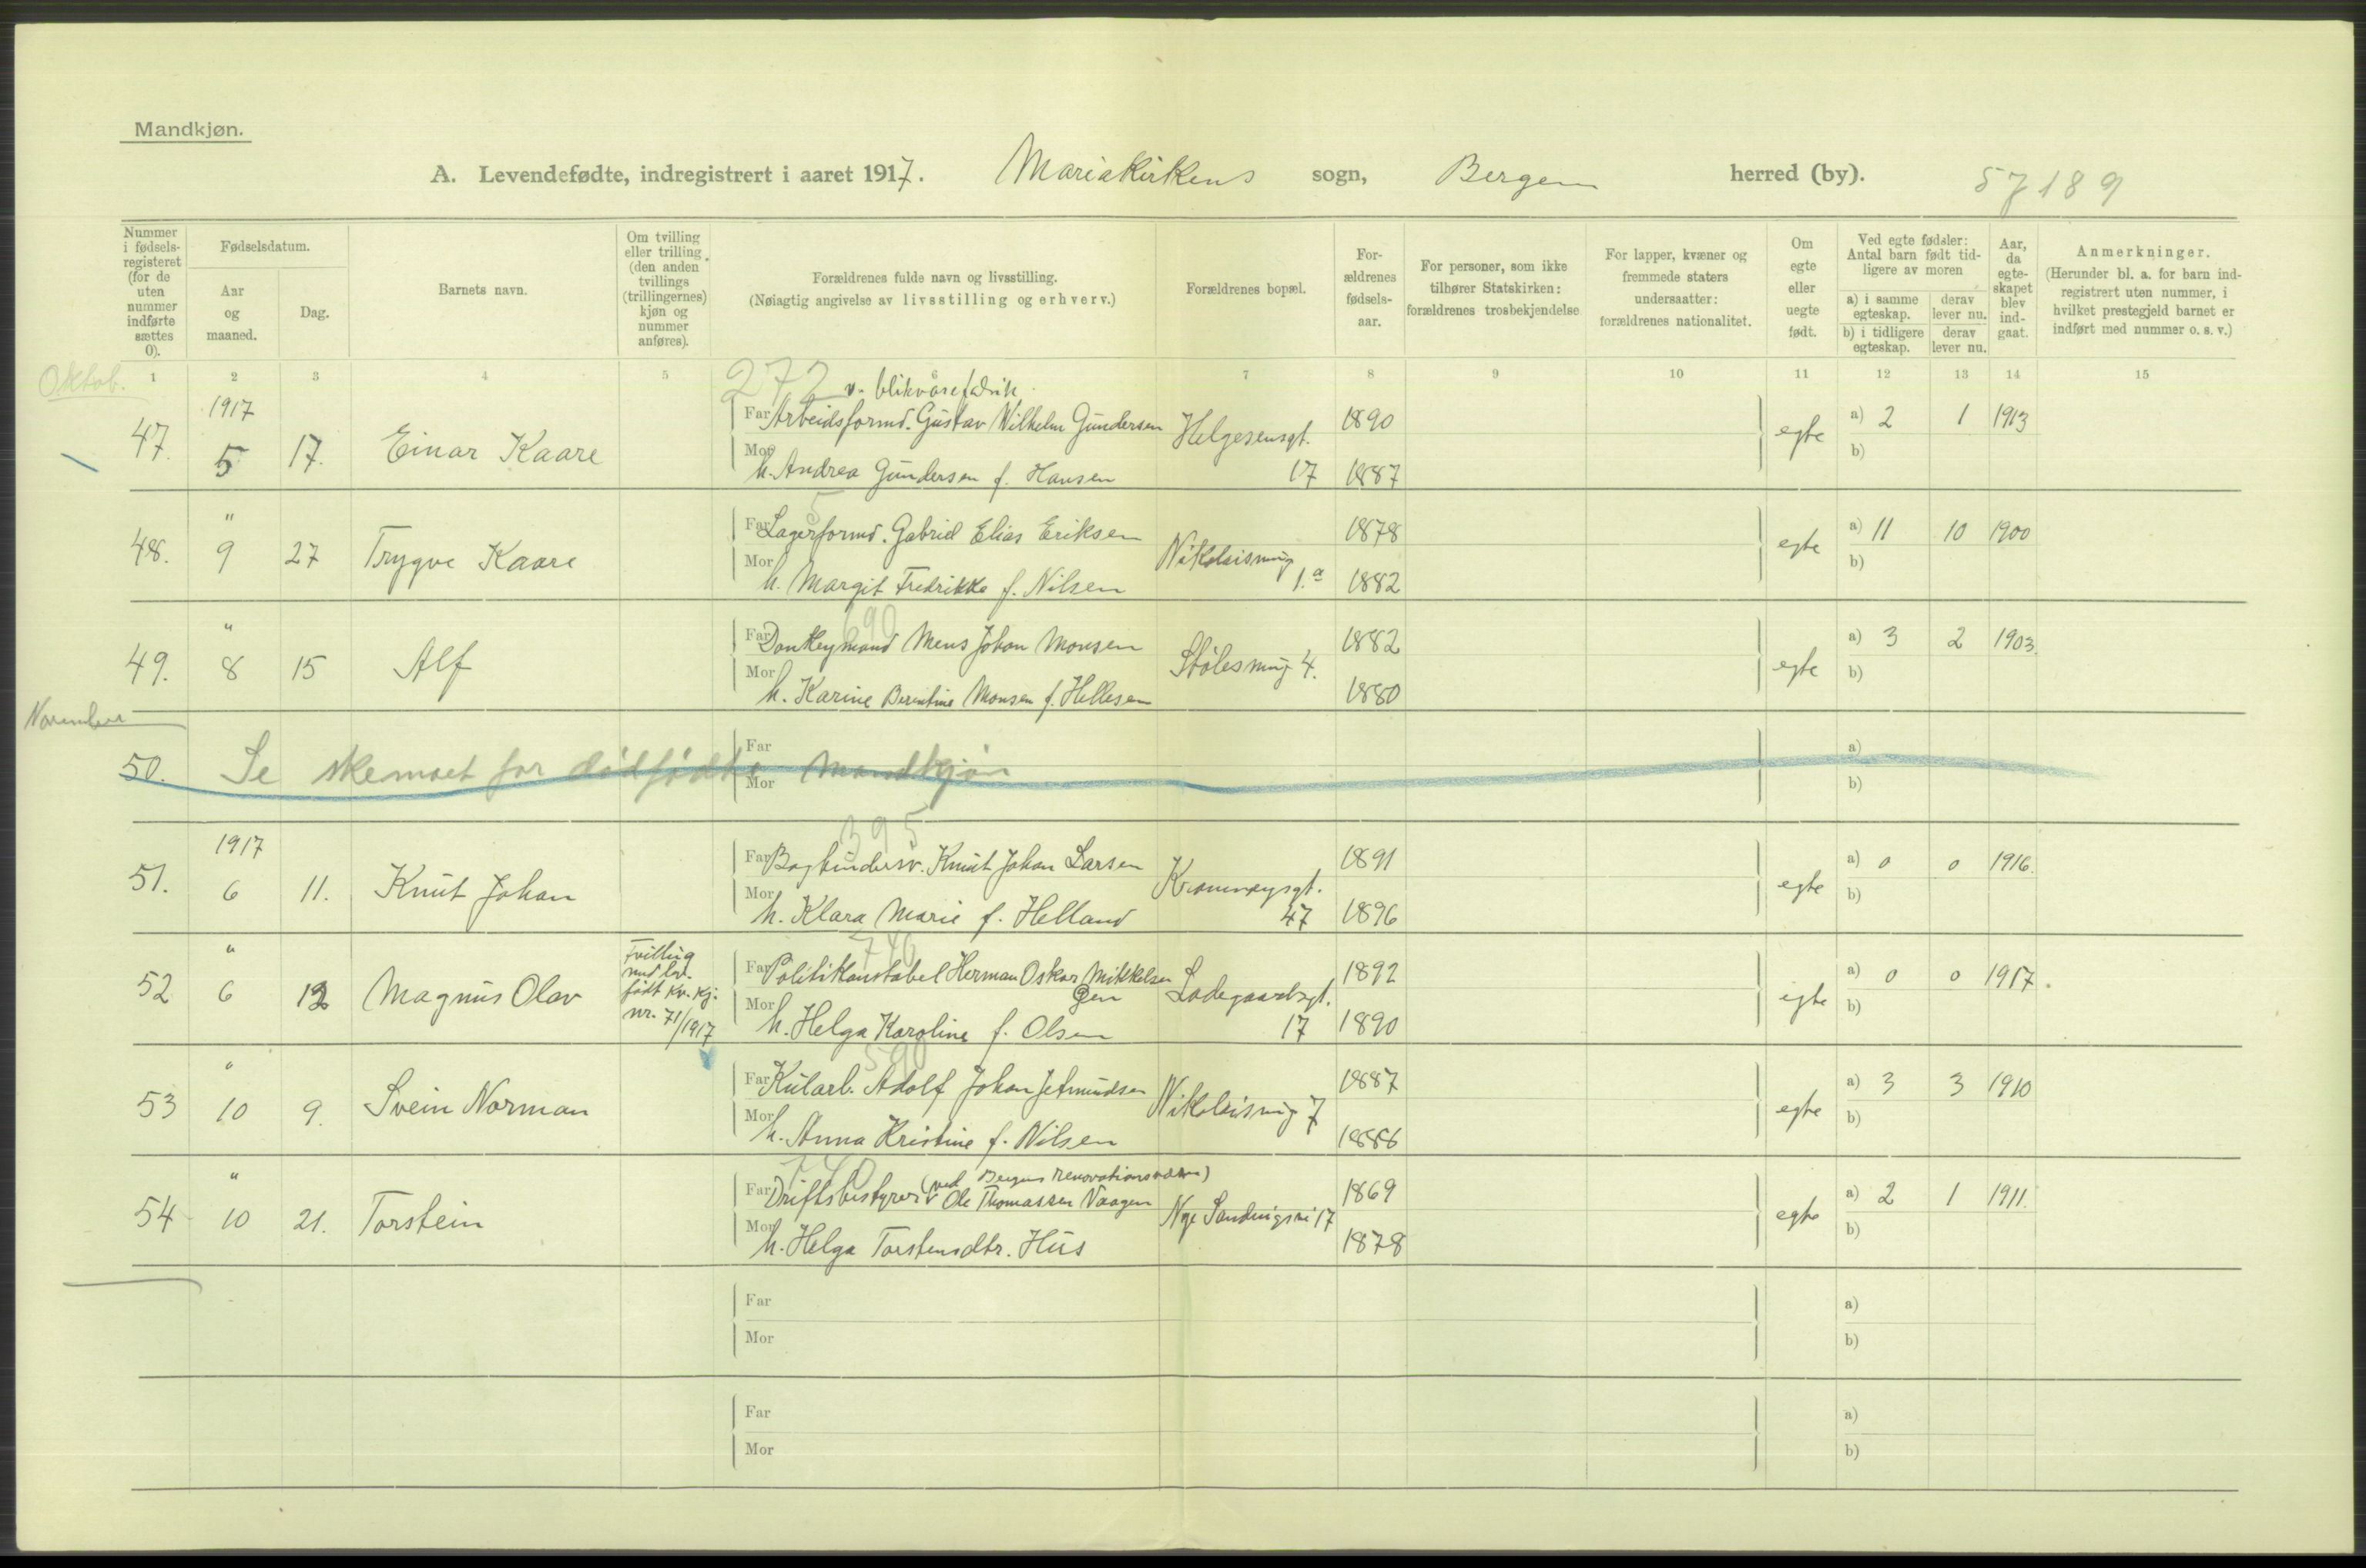 Mandkjøn.
A. Levendefødte, indregistrert i aaret 1917. Mariakirkens sogn, Bergen herred (by). 57189
Nummer i fødselsregisteret (for de uten nummer indførte sættes 0).
Fødselsdatum.
Aar og maaned.
Dag.
Barnets navn.
Om tvilling eller trilling (den anden tvillings (trillingernes) kjøn og nummer anføres).
Forældrenes fulde navn og livsstilling.
(Nøiagtig angivelse av livsstilling og erhverv.)
Forældrenes bopæl.
Forældrenes fødselsaar.
For personer, som ikke tilhører Statskirken: forældrenes trosbekjendelse
For lapper, kvæner og fremmede staters undersaatter: forældrenes nationalitet.
Om egte eller uegte født.
Ved egte fødsler: Antal barn født tidligere av moren
a) i samme egteskap.
derav lever nu.
b) i tidligere egteskap.
derav lever nu.
Aar, da egteskapet blev indgaat.
Anmerkninger.
(Herunder bl. a. for barn indregistrert uten nummer, i hvilket prestegjeld barnet er indført med nummer o. s. v.)
Oktob.
1 2 3 4 5 6 7 8 9 10 11 12 13 14 15
272 v. blikvarefabrik
1917
47. 5 17. Einar Kaare
Far Arbeidsformd. Gustav Wilhelm Gundersen Helgesensgt. 1890 egte a) 2 1 1913
Mor h. Andrea Gundersen f. Hansen 17 1887 b)
5
" 48. 9 27 Trygve Kaare
Far Lagerformd. Gabriel Elias Eriksen Nikolaismug 1878 egte a) 11 10 1900
Mor h. Margit Fredrikke f. Nilsen 1.a 1882 b)
690
" 49. 8 15 Alf
Far Donkeymand Mens Johan Monsen Stølesmug 4. 1882 egte a) 3 2 1903.
Mor h. Karine Berentine Monsen f. Hellesen 1880 b)
November
50. Se skemaet for dødfødte Mandkjøn
Far a)
Mor b)
395
1917
51. 6 11. Knut Johan
Far Bogbindersv. Knut Johan Larsen 1891 egte a) 0 0 1916.
Mor h. Klara Marie f. Helland 47 1896 b)
740
" 52 6 12 Magnus Olav
Tvilling
med lev.
født Kv. Kj.
nr. 71/1917
Far Politikonstabel Herman Oskar Mikkelsen Ladegaardsgt. 1892 egte a) 0 0 1917.
Mor h. Helga Karoline f. Olsen 17 1890 b)
590
" 53 10 9. Svein Norman
Far Kularb. Adolf Johan Jetmundsen Nikolaismug 7 1887 egte a) 3 3 1910
Mor h. Anna Kristine f. Nilsen 1886 b)
740
(ved Bergens renovationsvæsen)
" 54 10 21. Torstein
Far Driftsbestyrer Ole Thomassen Vaagen Nye Sandvigsvei 17 1869 egte a) 2 1 1911.
Mor h. Helga Torstensdtr. Hus 1878 b)
Far a)
Mor b)
Far a)
Mor b)